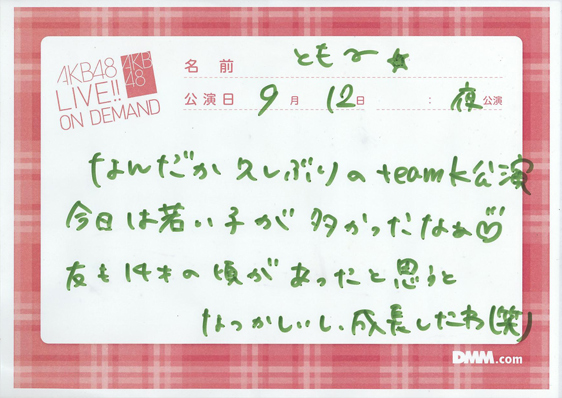 AKB48
LIVE!!
ON DEMAND
AKB
48
名前 とも〜☆
公演日 9月 12日 : 夜公演
なんだか久しぶりのteamK公演
今日は若い子が多かったなぁ♡
友も14才の頃があったと思うと
なつかしいし、成長したわ(笑)
DMM.com